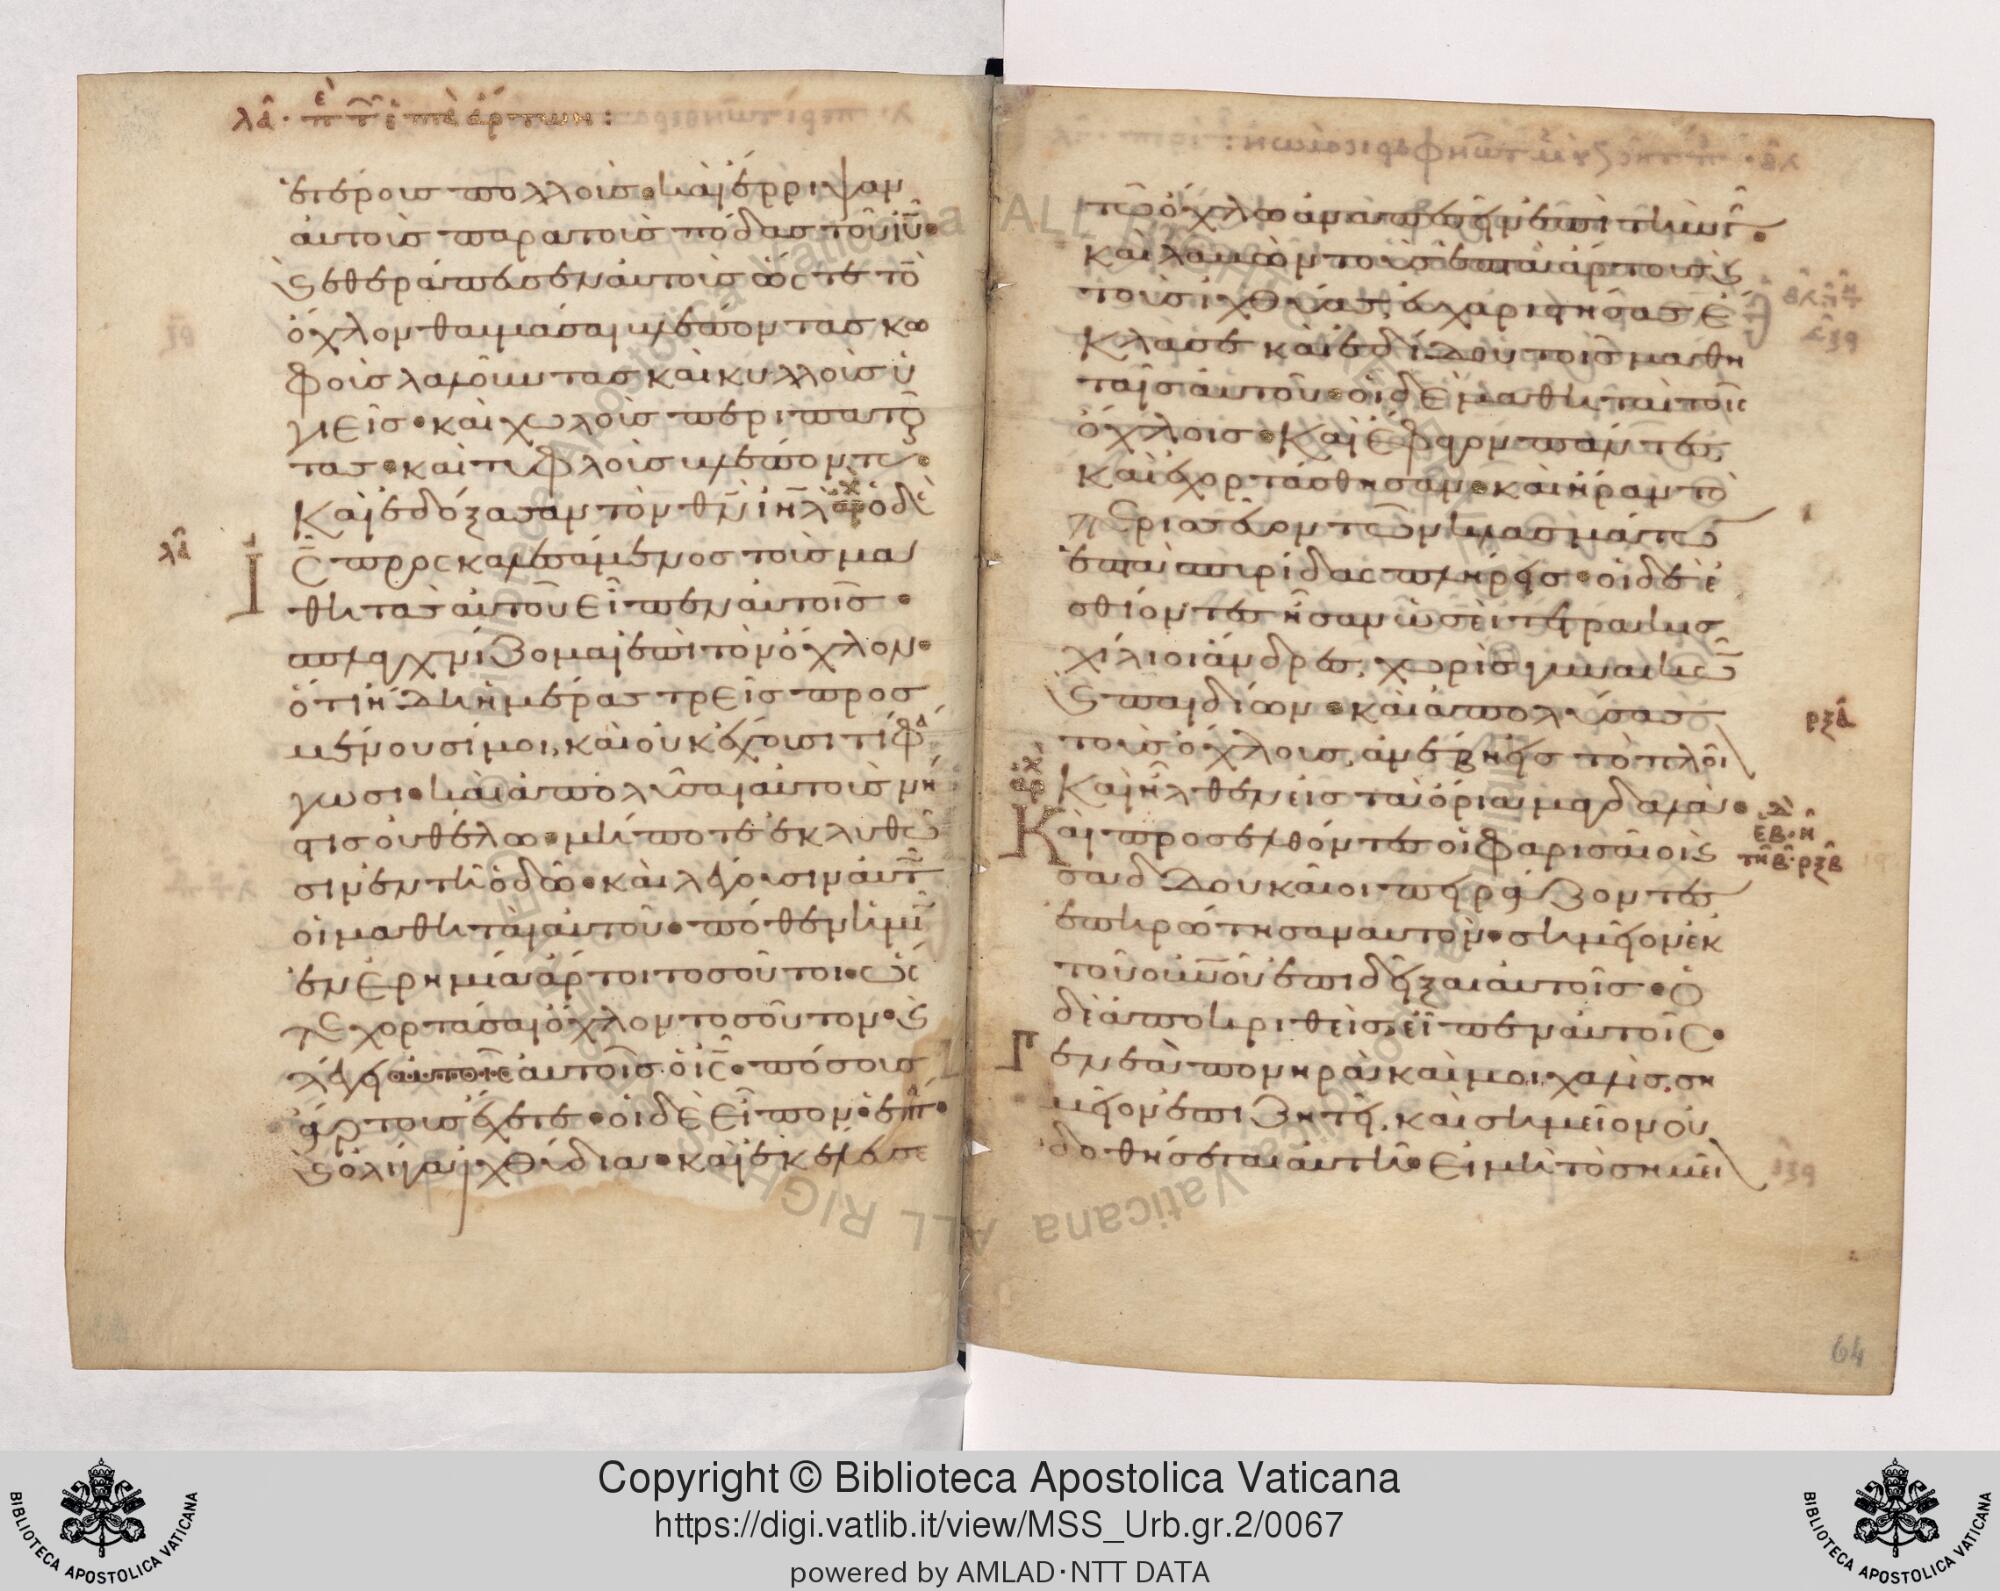 λα· π τ ζ ἄρτων:
ἑτέρους πολλοὺς· καὶ ἔρριψαν
αὐτοὺς παρὰ τοὺς πόδας τοῦ ιυ·
ϗ ἐθεράπευσεν αὐτοὺς ὥστε τὸ
ὄχλον θαυμάσαι βλέποντας κω
φοὺς λαλοῦντας καὶ κυλλοὺς ὑ
γιεῖς· καὶ χωλοὺς περιπατοῦ
τας· καὶ τυφλοὺς βλέποντας·
Καὶ ἐδόξασαν τὸν θν ιηλ ὁ δὲ
λα
Ις προσκαλεσάμενος τοὺς μα
θητὰς αὐτοῦ εἶπεν αὐτοῖς·
σπλαγχνίζομαι ἐπὶ τὸν ὄχλον·
ὅτι ἤδη ἡμέρας τρεῖς προσ
μένουσί μοι, καὶ οὐκ ἔχουσι τί φά
γωσι· καὶ ἀπολῦσαι αὐτοὺς νή
στις οὐ θέλω· μήποτε ἐκλυθῶ
σιν ἐν τῇ ὁδῷ· καὶ λέγουσιν αὐτ
οἱ μαθηταὶ αὐτοῦ· πόθεν ἡμῖ
ἐν ἐρημία ἄρτοι τοσοῦτοι· ὥς
τε χορτάσαι ὄχλον τοσοῦτον· ϗ
λέγει αὐτοῖς αὐτοῖς ὁ ις· πόσους
ἄρτους ἔχετε· οἱ δὲ εἶπον· ἑπτ·
ϗ ὀλίγα ἰχθύδια· καὶ ἐκέλευσε
τῶ ὄχλω ἀναπεσεῖν ἐπὶ τὴν γῆ·
καὶ λαβὼν τοὺς ἑπτὰ ἄρτους ϗ
τοὺς ἰχθύας, εὐχαριστήσας ἔ
κλασε καὶ ἐδίδου τοῖς μαθη
ταῖς αὐτοῦ· οἱ δὲ μαθηταὶ τοῖς
ὄχλοις· Καὶ ἔφαγον πάντες,
καὶ ἐχορτάσθησαν· καὶ ἦραν τὸ
περισσεῦον τῶν κλασμάτω
ἑπτὰ σπυρίδας πλήρεις· οἱ δὲ ἐ
σθίοντες ἦσαν ὡσεὶ τετρακισ
χίλιοι ἄνδρες, χωρὶς γυναικῶ
ϗ παιδίων· καὶ ἀπολύσας
ρξα
τοὺς ὄχλους, ἀνέβη εἰς τὸ πλοῖ
Καὶ ἦλθεν εἰς τὰ ὅρια μαγδαλά·
Καὶ προσελθόντες οἱ φαρισαῖοι ϗ
ρξβ
σαδδουκαῖοι πειράζοντες
ἐπηρώτησαν αὐτὸν· σημεῖον ἐκ
τοῦ οὐνοῦ ἐπιδεῖξαι αὐτοῖς· ὁ
δὲ ἀποκριθεὶς, εἶπεν αὐτοῖς·
Γενεὰ πονηρὰ καὶ μοιχαλὶς, ση
μεῖον ἐπιζητεῖ, καὶ σημεῖον οὐ
δοθήσεται αὐτῇ· εἰ μὴ τὸ σημεῖ
64
Copyright © Biblioteca Apostolica Vaticana
https://digi.vatlib.it/view/MSS_Urb.gr.2/0067
powered by AMLAD·NTT DATA
BIBLIOTECA APOSTOLICA VATICANA
BIBLIOTECA APOSTOLICA VATICANA